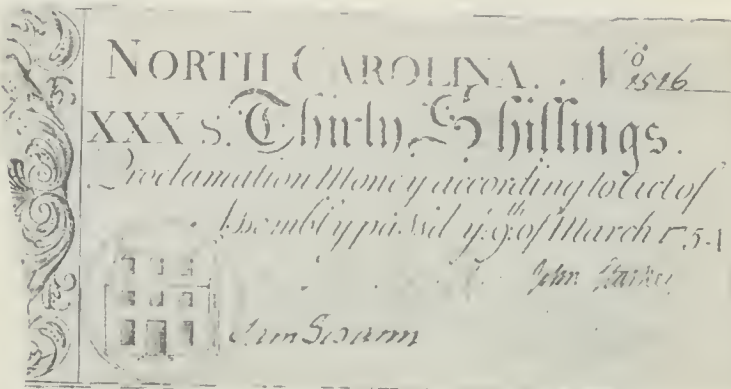 NORTH CAROLINA. . No 1516
XXX S. Thirty Shillings.
Proclamation Money according to Act of
Assembly passed ye. 9th of March 1754
John
Swann